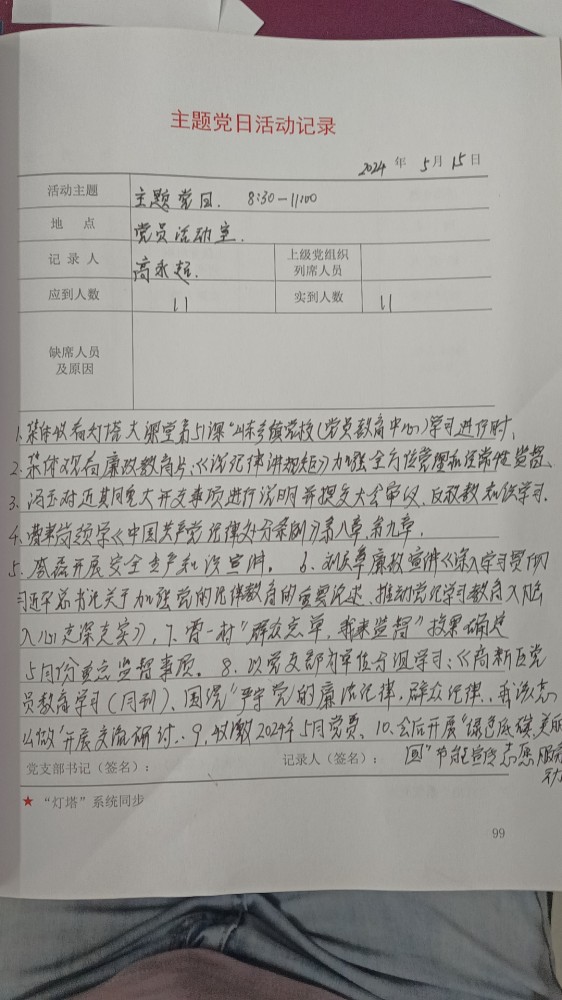 主题党日活动记录
2024 年 5月 15日
活动主题 主题党日. 8:30—11:00
地 点 党员活动室.
记 录 人 高永超. 上级党组织列席人员
应到人数 11 实到人数 11
缺席人员及原因
1.集体收看灯塔大课堂第51课"山东乡镇党校(党员教育中心)学习进行时.
2.集体观看廉政教育片:《说纪律讲规矩》加强全方位管理和经常性监督.
3.对近期重大开支事项进行说明并提交大会审议、反邪教知识学习.
4.领学《中国共产党纪律处分条例》第八章.第九章.
5.开展安全生产知识宣讲。6.廉政宣讲《深入学习贯彻
习近平总书记关于加强党的纪律教育的重要论述、推动党纪学习教育入脑
入心走深走实》,7."群众点单,我来监督"效果确定
5月份重点监督事项。8.以党支部为单位分组学习:《高新区党
员教育学习(月刊)、围绕"严守党的廉洁纪律,群众纪律、我该怎
么做"开展交流研讨.9.收缴2024年5月党费、10.会后开展"绿色低碳美丽
国"节能宣传志愿服务
党支部书记(签名): 记录人(签名):
★ "灯塔"系统同步
99